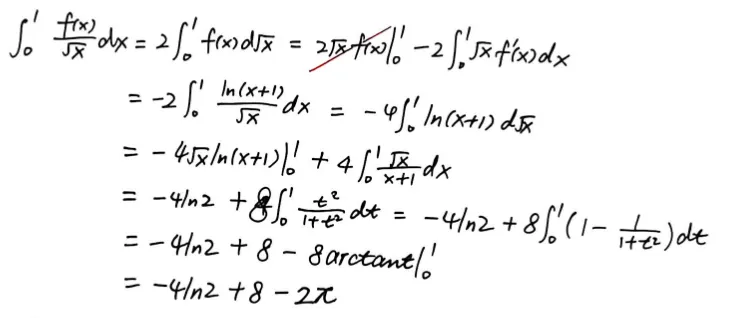 ∫₀¹ f(x)/√x dx = 2∫₀¹ f(x)d√x = 2√x f(x)|₀¹ - 2∫₀¹ √x f'(x)dx
= -2∫₀¹ ln(x+1)/√x dx = -4∫₀¹ ln(x+1) d√x
= -4√x ln(x+1)|₀¹ + 4∫₀¹ √x/(x+1) dx
= -4ln2 + 8∫₀¹ t²/(1+t²) dt = -4ln2 + 8∫₀¹ (1 - 1/(1+t²))dt
= -4ln2 + 8 - 8arctant|₀¹
= -4ln2 + 8 - 2π